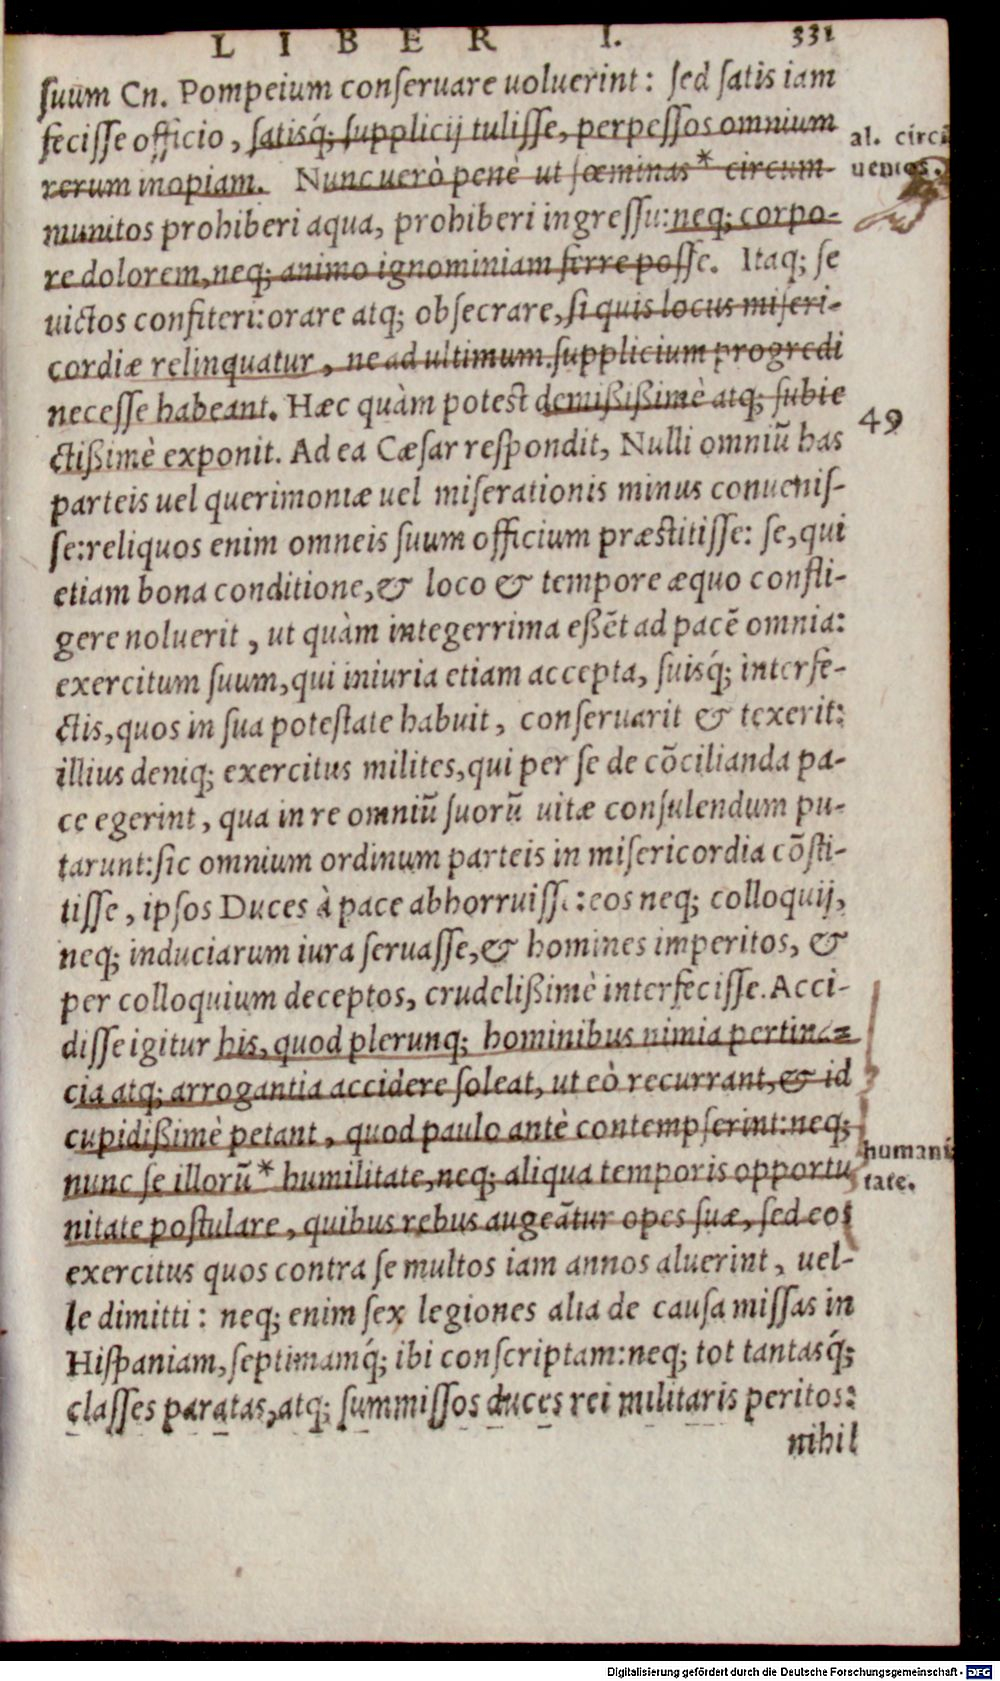 LIBER I. 331
ſuum Cn. Pompeium conſeruare uoluerint: ſed ſatis iam
feciſſe officio, ſatisq́; ſupplicij tuliſſe, perpeſſos omnium
rerum inopiam. Nunc uerò penè ut fœminas* circum-
al. circũ
uentos.
munitos prohiberi aqua, prohiberi ingreſſu: neq; corpo-
re dolorem, neq; animo ignominiam ferre poſſe. Itaq; ſe
uictos confiteri: orare atq; obſecrare, ſi quis locus miſeri-
cordiæ relinquatur, ne ad ultimum ſupplicium progredi
neceſſe habeant. Hæc quàm poteſt demißißimè atq; ſubie
49
ctißimè exponit. Ad ea Cæſar reſpondit, Nulli omniũ has
parteis uel querimoniæ uel miſerationis minus conueniſ-
ſe: reliquos enim omneis ſuum officium præſtitiſſe: ſe, qui
etiam bona conditione, & loco & tempore æquo confli-
gere noluerit, ut quàm integerrima eßẽt ad pacẽ omnia:
exercitum ſuum, qui iniuria etiam accepta, ſuisq́; interfe-
ctis, quos in ſua poteſtate habuit, conſeruarit & texerit:
illius deniq; exercitus milites, qui per ſe de cõcilianda pa-
ce egerint, qua in re omniũ ſuorũ uitæ conſulendum pu-
tarunt: ſic omnium ordinum parteis in miſericordia cõſti-
tiſſe, ipſos Duces à pace abhorruiſſe: eos neq; colloquij,
neq; induciarum iura ſeruaſſe, & homines imperitos, &
per colloquium deceptos, crudelißimè interfeciſſe. Acci-
diſſe igitur his, quod plerunq; hominibus nimia pertina-
cia atq; arrogantia accidere ſoleat, ut eò recurrant, & id
cupidißimè petant, quod paulo antè contempſerint: neq;
nunc ſe illorũ* humilitate, neq; aliqua temporis opportu
humani
tate.
nitate poſtulare, quibus rebus augeãtur opes ſuæ, ſed eos
exercitus quos contra ſe multos iam annos aluerint, uel-
le dimitti: neq; enim ſex legiones alia de cauſa miſſas in
Hiſpaniam, ſeptimamq́; ibi conſcriptam: neq; tot tantasq́;
claſſes paratas, atq; ſummiſſos duces rei militaris peritos:
nihil
Digitalisierung gefördert durch die Deutsche Forschungsgemeinschaft - DFG